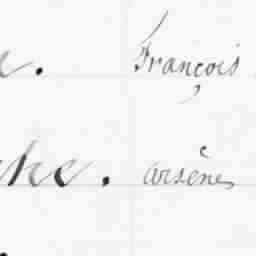 François
che. arsène